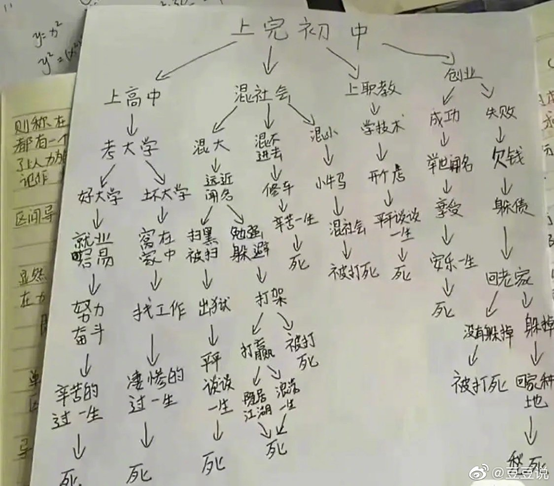 y=x²
上完初中
上高中 混社会 上职教 创业
考大学 混大 混不进去 混小 学技术 成功 失败
好大学 坏大学 远近闻名 修车 小牛马 开个店 举世闻名 欠钱
就业容易 窝在家中 扫黑被扫 勉强躲避 辛苦一生 混社会 平平谈谈一生 享受 躲债
努力奋斗 找工作 出狱 打架 死 被打死 死 安乐一生 回老家
辛苦的过一生 凄惨的过一生 平平谈谈一生 打赢 被打死 死 没有躲掉 躲掉
死 死 死 隐居江湖 混荡一生 被打死 回家种地
死 死
则称在
都有一个
区间
@豆豆说